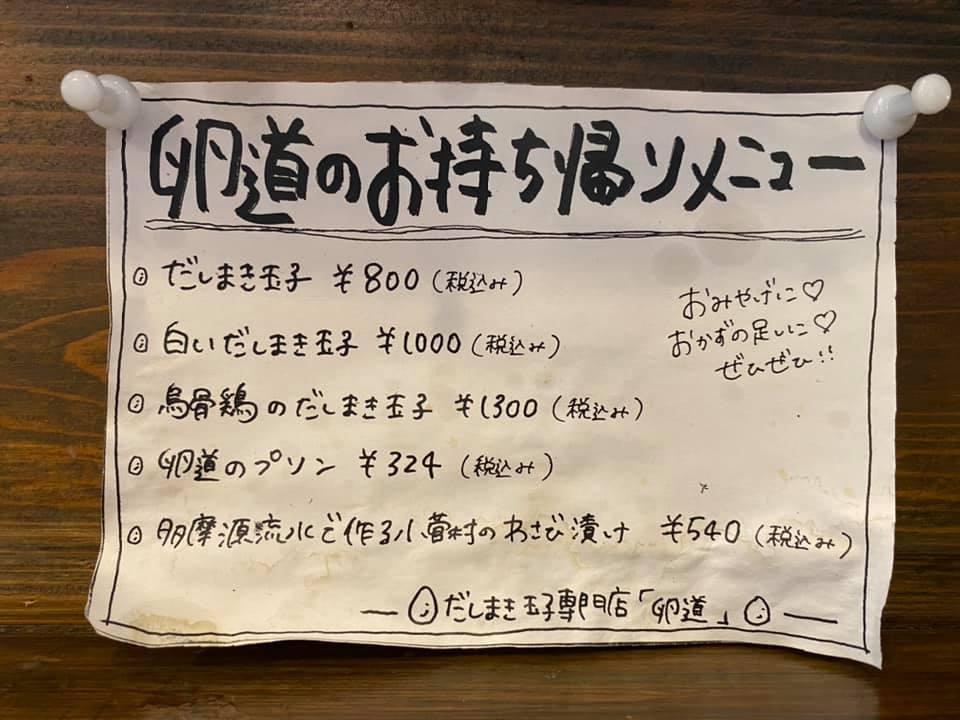 卵道のお持ち帰りメニュー
だしまき玉子 ¥800(税込み)
白いだしまき玉子 ¥1000(税込み)
烏骨鶏のだしまき玉子 ¥1300(税込み)
卵道のプリン ¥324(税込み)
多摩源流水で作る小菅村のわさび漬け ¥540(税込み)
おみやげに♡
おかずの足しに♡
ぜひぜひ!!
だしまき玉子専門店「卵道」